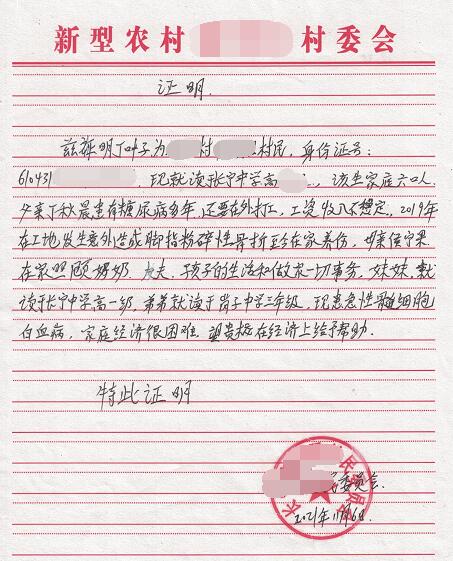 新型农村 村委会
证明
兹证明丁叶子为 村 村民，身份证号：
610431 现就读张宁中学高 该生家庭六口人
父亲丁秋晨患有糖尿病多年，还要在外打工，工资收入不稳定，2019年
在工地发生意外造成脚指粉碎性骨折至今在家养伤，母亲侯守果
在家照顾奶奶 丈夫、孩子的生活和做家一切事务，妹妹 就
读于张宁中学高一级，弟弟就读于 子中学三年级，现患急性髓细胞
白血病，家庭经济很困难，望贵校在经济上给予帮助。
特此证明
委员会
2021年11月6日